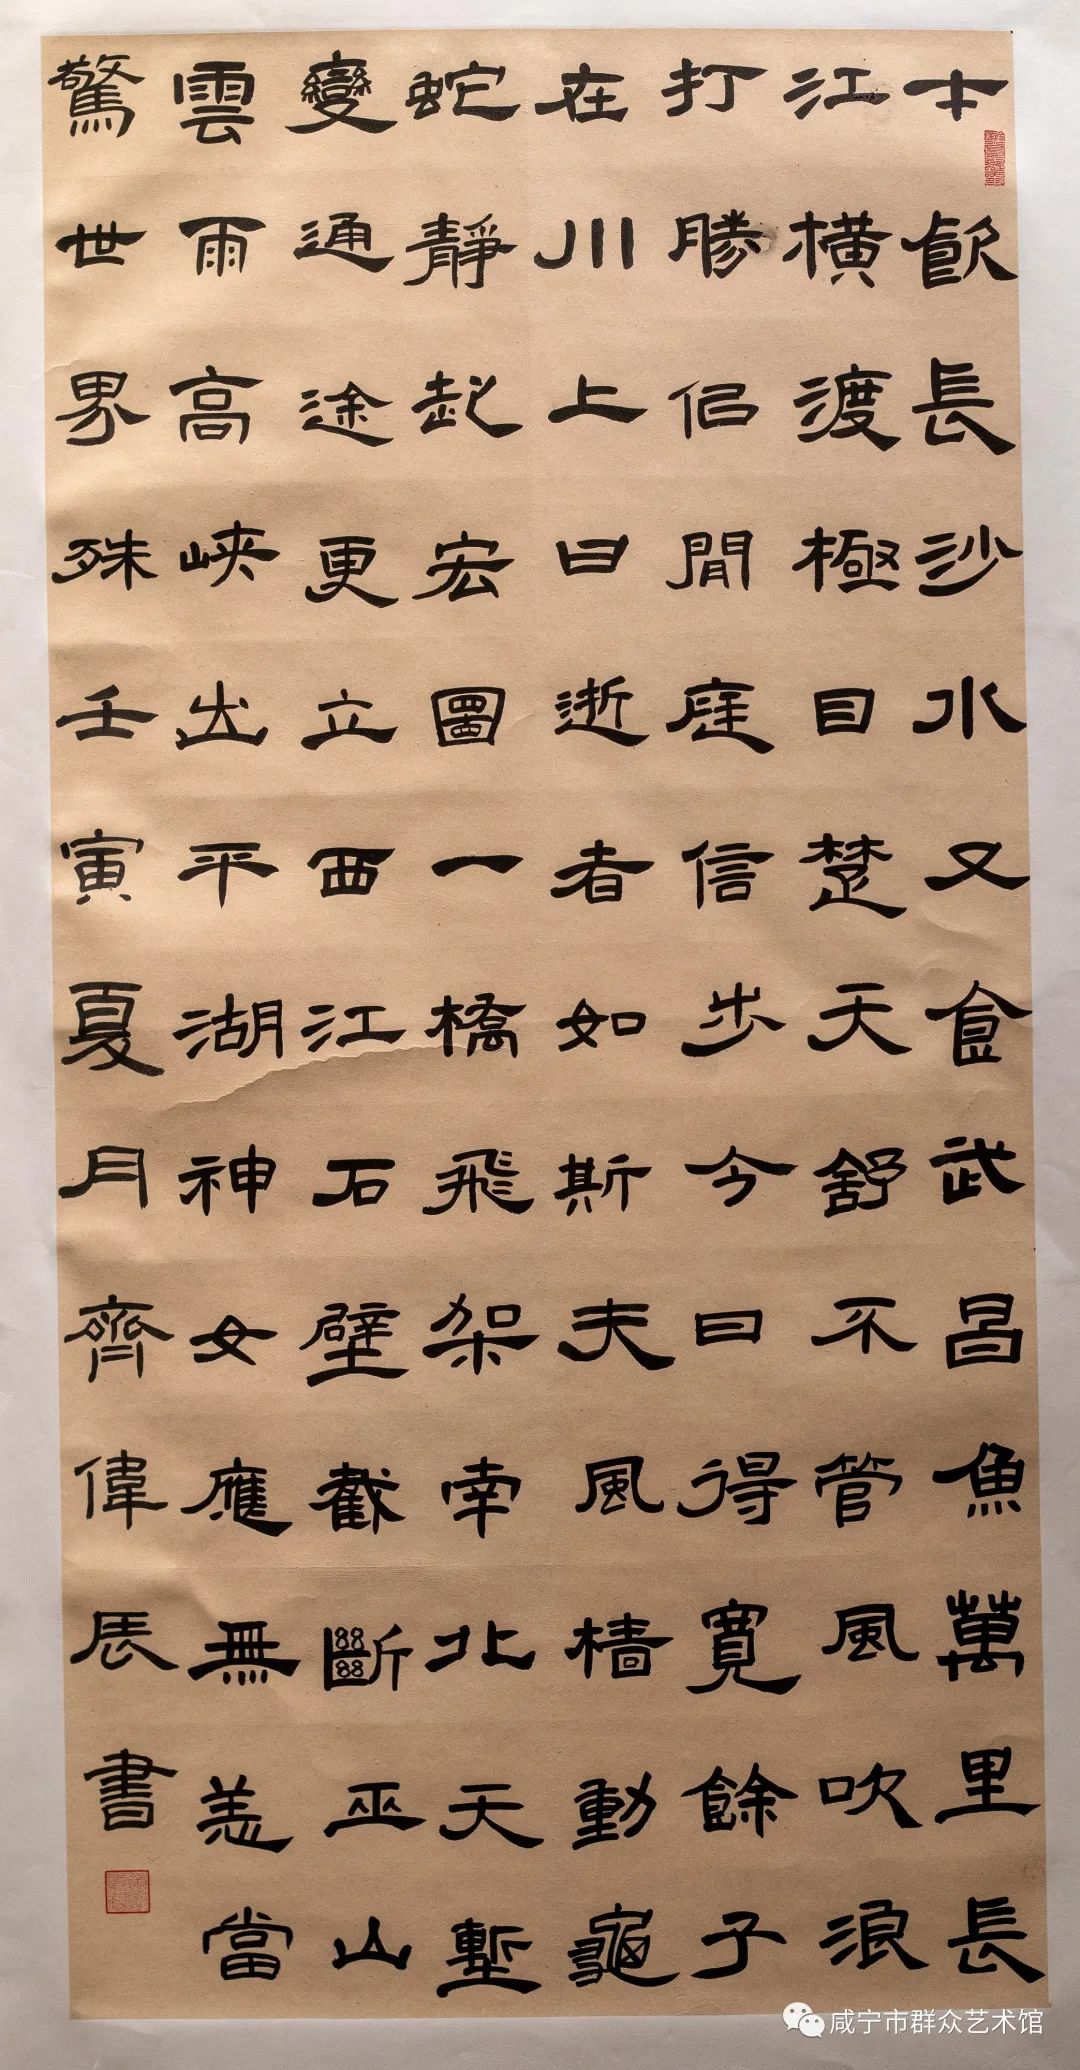 本飲長沙水又食武昌魚萬里長
江橫渡極目楚天舒不管風吹浪
打勝佀閒庭信步今日得寬餘子
在川上曰逝者如斯夫風檣動龜
蛇靜起宏圖一橋飛架南北天塹
變通途更立西江石壁截斷巫山
雲雨高峽出平湖神女應無恙當
驚世界殊壬寅夏月齊偉辰書
咸宁市群众艺术馆